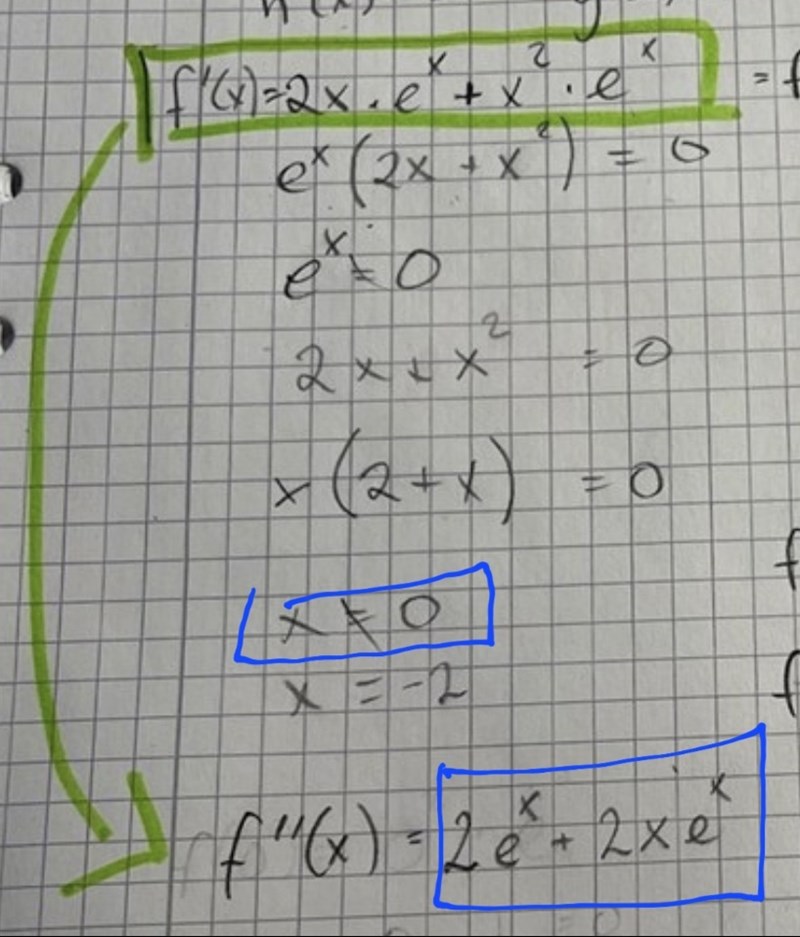 f'(x)=2x·eˣ + x²·eˣ = f
eˣ(2x + x²) = 0
eˣ ≠ 0
2x + x² = 0
x(2+x) = 0
x ≠ 0
x = -2
f''(x) = 2eˣ + 2xeˣ